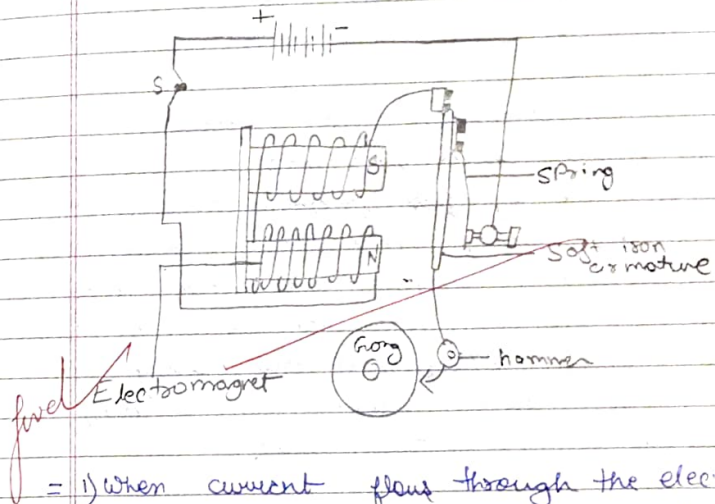 + -
S
S
Spring
N
Soft iron
armature
Gong
hammer
Electromagnet
= 1) When current flows through the elec